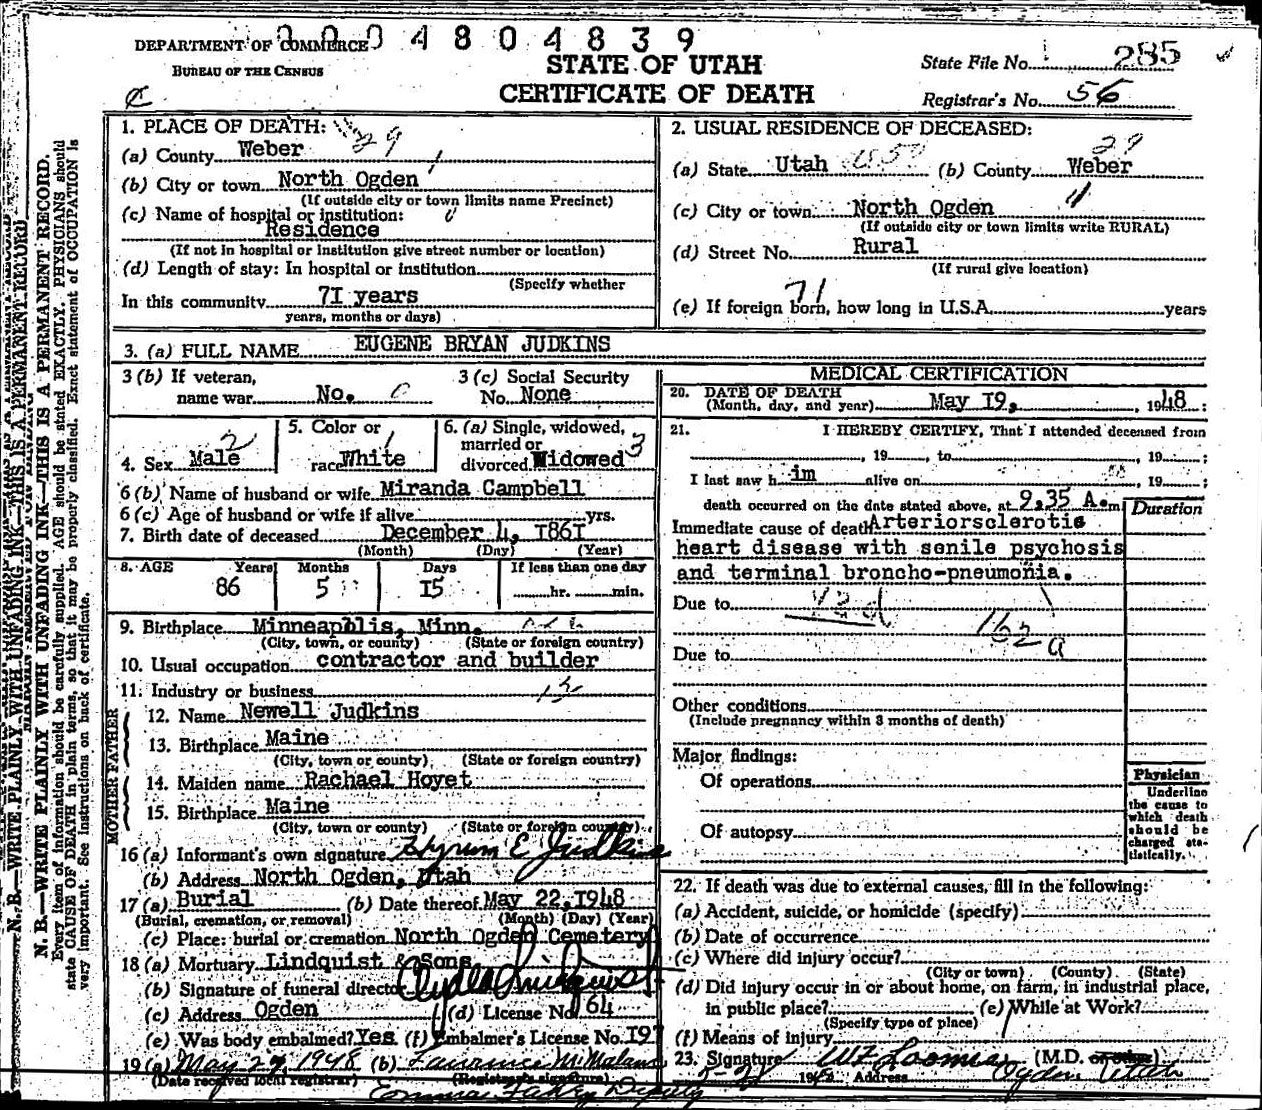 0004804839
DEPARTMENT OF COMMERCE
BUREAU OF THE CENSUS
STATE OF UTAH
CERTIFICATE OF DEATH
State File No. 285
Registrar's No. 56
N. B.—WRITE PLAINLY WITH UNFADING INK—THIS IS A PERMANENT RECORD.
Every item of information should be carefully supplied. AGE should be stated EXACTLY. PHYSICIANS should
state CAUSE OF DEATH in plain terms, so that it may be properly classified. Exact statement of OCCUPATION is
very important. See instructions on back of certificate.
1. PLACE OF DEATH: 29
(a) County Weber
(b) City or town North Ogden
(If outside city or town limits name Precinct)
(c) Name of hospital or institution:
Residence
(If not in hospital or institution give street number or location)
(d) Length of stay: In hospital or institution
(Specify whether
In this community 71 years
years, months or days)
2. USUAL RESIDENCE OF DECEASED:
29
(a) State Utah (b) County Weber
(c) City or town North Ogden
(If outside city or town limits write RURAL)
(d) Street No. Rural
(If rural give location)
71
(e) If foreign born, how long in U.S.A. years
3. (a) FULL NAME EUGENE BRYAN JUDKINS
3 (b) If veteran,
name war No.
3 (c) Social Security
No. None
4. Sex Male 2
5. Color or
race White 1
6. (a) Single, widowed,
married or
divorced Widowed 3
6 (b) Name of husband or wife Miranda Campbell
6 (c) Age of husband or wife if alive yrs.
7. Birth date of deceased December 4, 1861
(Month) (Day) (Year)
8. AGE Years Months Days If less than one day
86 5 15 hr. min.
9. Birthplace Minneaphlis, Minn.
(City, town, or county) (State or foreign country)
10. Usual occupation contractor and builder
11. Industry or business
FATHER
12. Name Newell Judkins
13. Birthplace Maine
(City, town or county) (State or foreign country)
MOTHER
14. Maiden name Rachael Hoyet
15. Birthplace Maine
(City, town or county) (State or foreign country)
16 (a) Informant's own signature Hyrum E Judkins
(b) Address North Ogden, Utah
17 (a) Burial (b) Date thereof May 22, 1948
(Burial, cremation, or removal) (Month) (Day) (Year)
(c) Place: burial or cremation North Ogden Cemetery
18 (a) Mortuary Lindquist & Sons
(b) Signature of funeral director Clyde Lindquist
(c) Address Ogden (d) License No 64
(e) Was body embalmed? Yes (f) Embalmer's License No. 197
19 (a) May 27, 1948 (b) Lawrence
(Date received local registrar) (Registrar's signature)
Deputy
MEDICAL CERTIFICATION
20. DATE OF DEATH
(Month, day, and year) May 19, , 1948 :
21. I HEREBY CERTIFY, That I attended deceased from
, 19 , to , 19 ;
I last saw h im alive on , 19 ;
death occurred on the date stated above, at 9.35 A.m.
Duration
Immediate cause of death Arteriosclerotic
heart disease with senile psychosis
and terminal broncho-pneumonia.
Due to
162a
Due to
Other conditions
(Include pregnancy within 3 months of death)
Major findings:
Of operations
Of autopsy
Physician
Underline
the cause to
which death
should be
charged sta-
tistically.
22. If death was due to external causes, fill in the following:
(a) Accident, suicide, or homicide (specify)
(b) Date of occurrence
(c) Where did injury occur?
(City or town) (County) (State)
(d) Did injury occur in or about home, on farm, in industrial place,
in public place? (e) While at Work?
(Specify type of place)
(f) Means of injury
23. Signature (M.D. or other)
1948 Address Ogden Utah